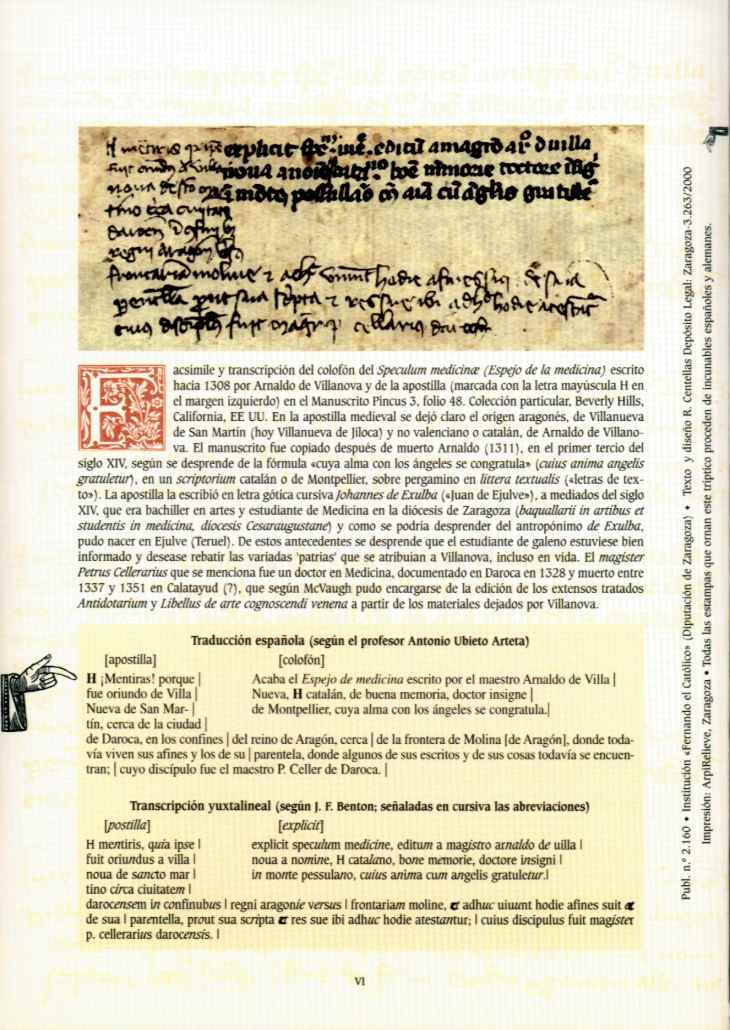 Facsimile y transcripción del colofón del Speculum medicinæ (Espejo de la medicina) escrito
hacia 1308 por Arnaldo de Villanova y de la apostilla (marcada con la letra mayúscula H en
el margen izquierdo) en el Manuscrito Pincus 3, folio 48. Colección particular, Beverly Hills,
California, EE UU. En la apostilla medieval se dejó claro el origen aragonés, de Villanueva
de San Martín (hoy Villanueva de Jiloca) y no valenciano o catalán, de Arnaldo de Villano-
va. El manuscrito fue copiado después de muerto Arnaldo (1311), en el primer tercio del
siglo XIV, según se desprende de la fórmula «cuya alma con los ángeles se congratula» (cuius anima angelis
gratuletur), en un scriptorium catalán o de Montpellier, sobre pergamino en littera textualis («letras de tex-
to»). La apostilla la escribió en letra gótica cursiva Johannes de Exulba («Juan de Ejulve»), a mediados del siglo
XIV, que era bachiller en artes y estudiante de Medicina en la diócesis de Zaragoza (baquallarii in artibus et
studentis in medicina, diocesis Cesaraugustane) y como se podría desprender del antropónimo de Exulba,
pudo nacer en Ejulve (Teruel). De estos antecedentes se desprende que el estudiante de galeno estuviese bien
informado y desease rebatir las variadas 'patrias' que se atribuían a Villanova, incluso en vida. El magister
Petrus Cellerarius que se menciona fue un doctor en Medicina, documentado en Daroca en 1328 y muerto entre
1337 y 1351 en Calatayud (?), que según McVaugh pudo encargarse de la edición de los extensos tratados
Antidotarium y Libellus de arte cognoscendi venena a partir de los materiales dejados por Villanova.
Traducción española (según el profesor Antonio Ubieto Arteta)
[apostilla] [colofón]
H ¡Mentiras! porque | Acaba el Espejo de medicina escrito por el maestro Arnaldo de Villa |
fue oriundo de Villa | Nueva, H catalán, de buena memoria, doctor insigne |
Nueva de San Mar- | de Montpellier, cuya alma con los ángeles se congratula.|
tín, cerca de la ciudad |
de Daroca, en los confines | del reino de Aragón, cerca | de la frontera de Molina [de Aragón], donde toda-
vía viven sus afines y los de su | parentela, donde algunos de sus escritos y de sus cosas todavía se encuen-
tran; | cuyo discípulo fue el maestro P. Celler de Daroca. |
Transcripción yuxtalineal (según J. F. Benton; señaladas en cursiva las abreviaciones)
[postilla] [explicit]
H mentiris, quia ipse | explicit speculum medicine, editum a magistro arnaldo de uilla |
fuit oriundus a villa | noua a nomine, H catalano, bone memorie, doctore insigni |
noua de sancto mar | in monte pessulano, cuius anima cum angelis gratuletur.|
tino circa ciuitatem |
darocensem in confinubus | regni aragonie versus | frontariam moline, et adhuc uiuunt hodie afines suit et
de sua | parentella, prout sua scripta et res sue ibi adhuc hodie atestantur; | cuius discipulus fuit magister
p. cellerarius darocensis. |
VI
Publ. n.º 2.160 • Institución «Fernando el Católico» (Diputación de Zaragoza) • Texto y diseño R. Centellas Depósito Legal: Zaragoza-3.263/2000
Impresión: ArpiRelieve, Zaragoza • Todas las estampas que ornan este tríptico proceden de incunables españoles y alemanes.